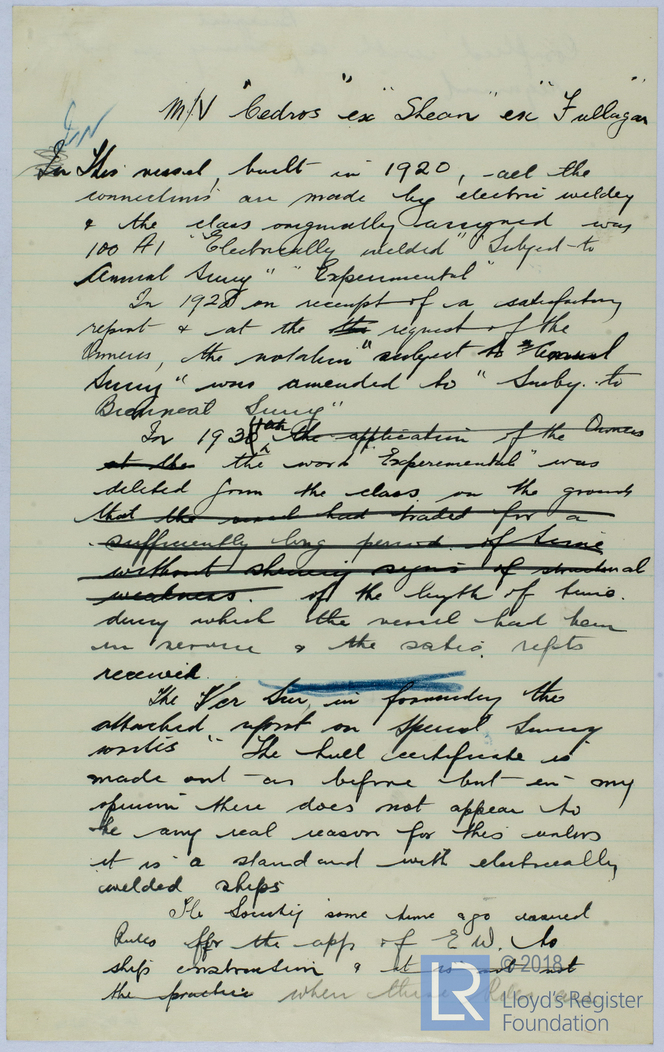 M/V "Cedros" ex "Shean" ex "Fullagar"
In This vessel, built in 1920, all the
connections are made by electric weldg
& the class originally assigned was
100 A1 "Electrically welded" "Subject to
Annual Survey" "Experimental"
In 192 on receipt of a satisfactory
report & at the the request of the
Owners, the notation "subject to Annual
Survey" was amended to "Subj. to
Biennial Survey"
In 193 the application of the Owners
at the the word "Experimental" was
deleted from the class on the grounds
that the vessel had traded for a
sufficiently long period of time
without shewing signs of structural
weakness. of the length of time.
during which the vessel had been
in service & the satis. repts
received.
The Ver Sur, in forwarding the
attached report on Special Survey
writes "The hull certificate is
made out as before but in my
opinion there does not appear to
be any real reason for this unless
it is a standard with electrically
welded ships
The Society some time ago issued
Rules for the app of E W. to
ships construction & it is not
the practice when these Rules are
© 2018
LR
Lloyd's Register
Foundation